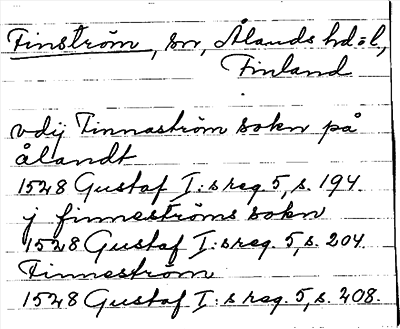 Finström, sn, Ålands hd:l,
Finland
vdij Finnaström sokn på
ålandt
1528 Gustaf I:s reg. 5, s. 194.
j finneströms sokn
1528 Gustaf I:s reg. 5, s. 204.
Finneström
1528 Gustaf I:s reg. 5, s. 208.